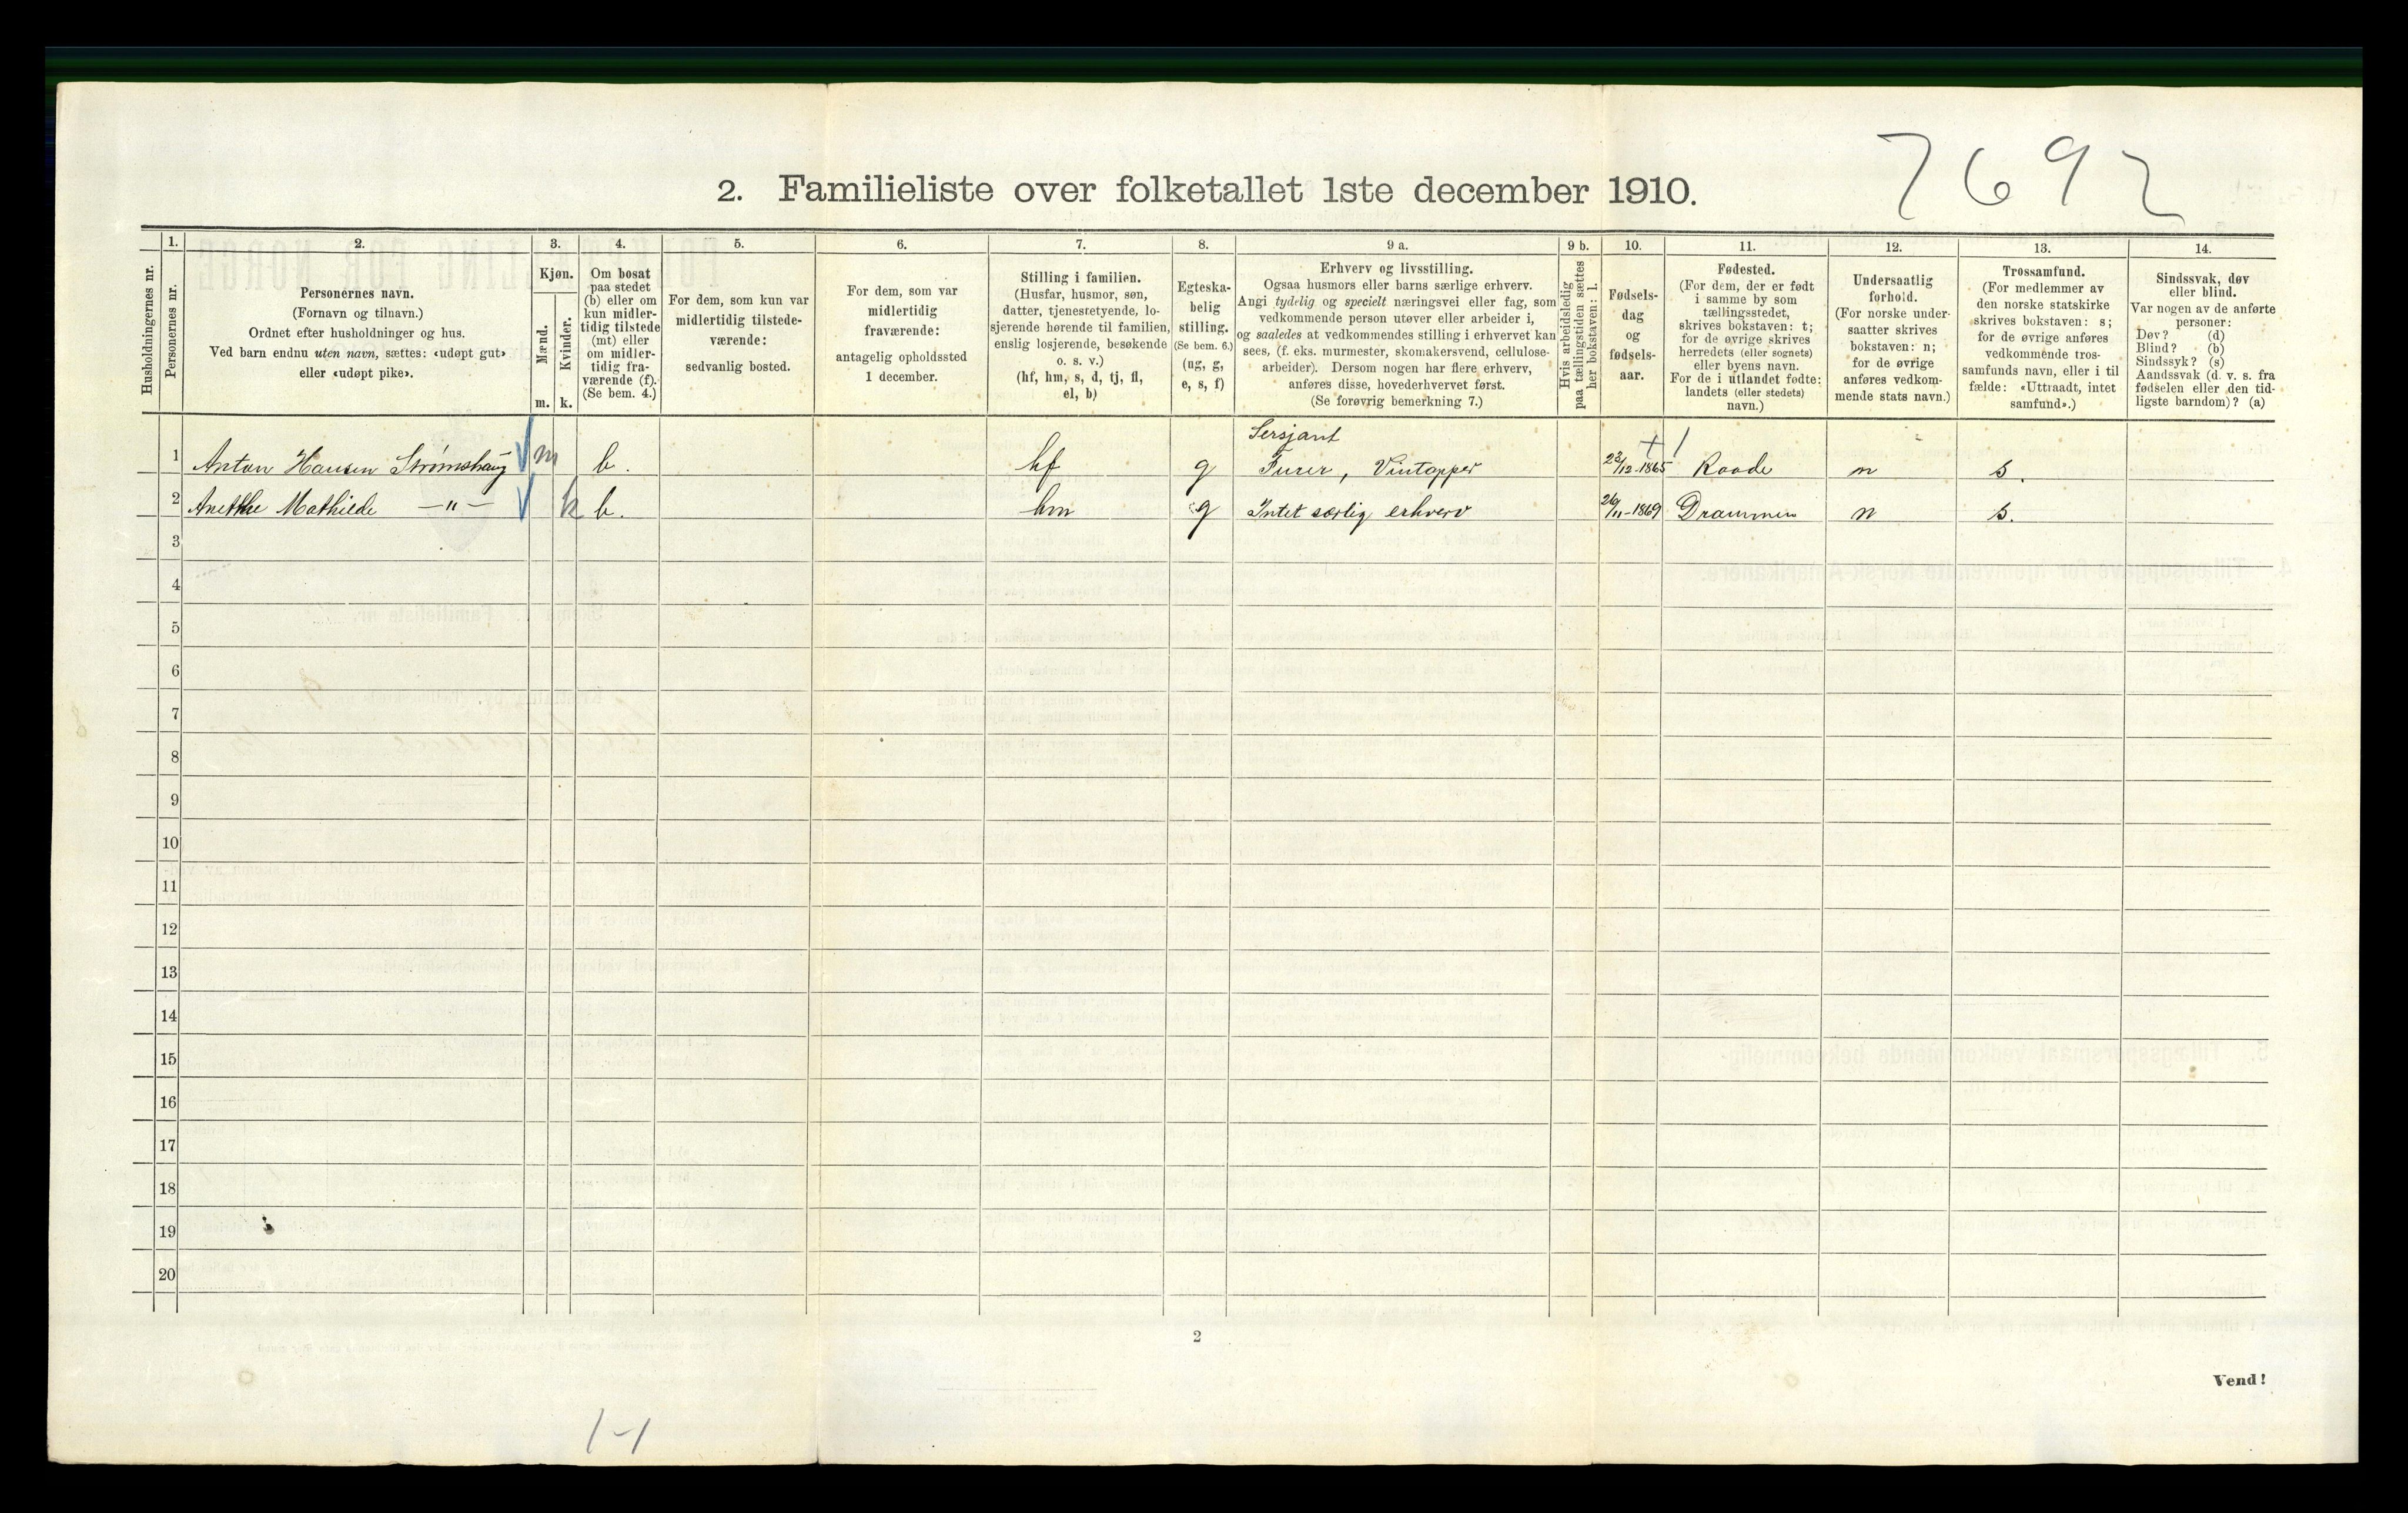 7692
2. Familieliste over folketallet 1ste december 1910.
Husholdningernes nr.
1. Personernes nr.
2. Personernes navn. (Fornavn og tilnavn.) Ordnet efter husholdninger og hus. Ved barn endnu uten navn, sættes: «udøpt gut» eller «udøpt pike».
3. Kjøn. Mænd. m. Kvinder. k.
4. Om bosat paa stedet (b) eller om kun midlertidig tilstede (mt) eller om midlertidig fraværende (f). (Se bem. 4.)
5. For dem, som kun var midlertidig tilstedeværende: sedvanlig bosted.
6. For dem, som var midlertidig fraværende: antagelig opholdssted 1 december.
7. Stilling i familien. (Husfar, husmor, søn, datter, tjenestetyende, losjerende hørende til familien, enslig losjerende, besøkende o. s. v.) (hf, hm, s, d, tj, fl, el, b)
8. Egteskabelig stilling. (Se bem. 6.) (ug, g, e, s, f)
9 a. Erhverv og livsstilling. Ogsaa husmors eller barns særlige erhverv. Angi tydelig og specielt næringsvei eller fag, som vedkommende person utøver eller arbeider i, og saaledes at vedkommendes stilling i erhvervet kan sees, (f. eks. murmester, skomakersvend, cellulosearbeider). Dersom nogen har flere erhverv, anføres disse, hovederhvervet først. (Se forøvrig bemerkning 7.)
9 b. Hvis arbeidsledig paa tællingstiden sættes her bokstaven: l.
10. Fødselsdag og fødselsaar.
11. Fødested. (For dem, der er født i samme by som tællingsstedet, skrives bokstaven: t; for de øvrige skrives herredets (eller sognets) eller byens navn. For de i utlandet fødte: landets (eller stedets) navn.)
12. Undersaatlig forhold. (For norske undersaatter skrives bokstaven: n; for de øvrige anføres vedkommende stats navn.)
13. Trossamfund. (For medlemmer av den norske statskirke skrives bokstaven: s; for de øvrige anføres vedkommende trossamfunds navn, eller i tilfælde: «Uttraadt, intet samfund».)
14. Sindssvak, døv eller blind. Var nogen av de anførte personer: Døv? (d) Blind? (b) Sindssyk? (s) Aandssvak (d. v. s. fra fødselen eller den tidligste barndom)? (a)
1 Anton Hansen Strømshaug m b. hf g Sersjant Furer, Vintapper 23/12-1865 Raade n s.
2 Anethe Mathilde —"— k b. hm g Intet særlig erhverv 26/11-1869 Drammen n s.
3
4
5
6
7
8
9
10
11
12
13
14
15
16
17
18
19
20
2
Vend!
1-1